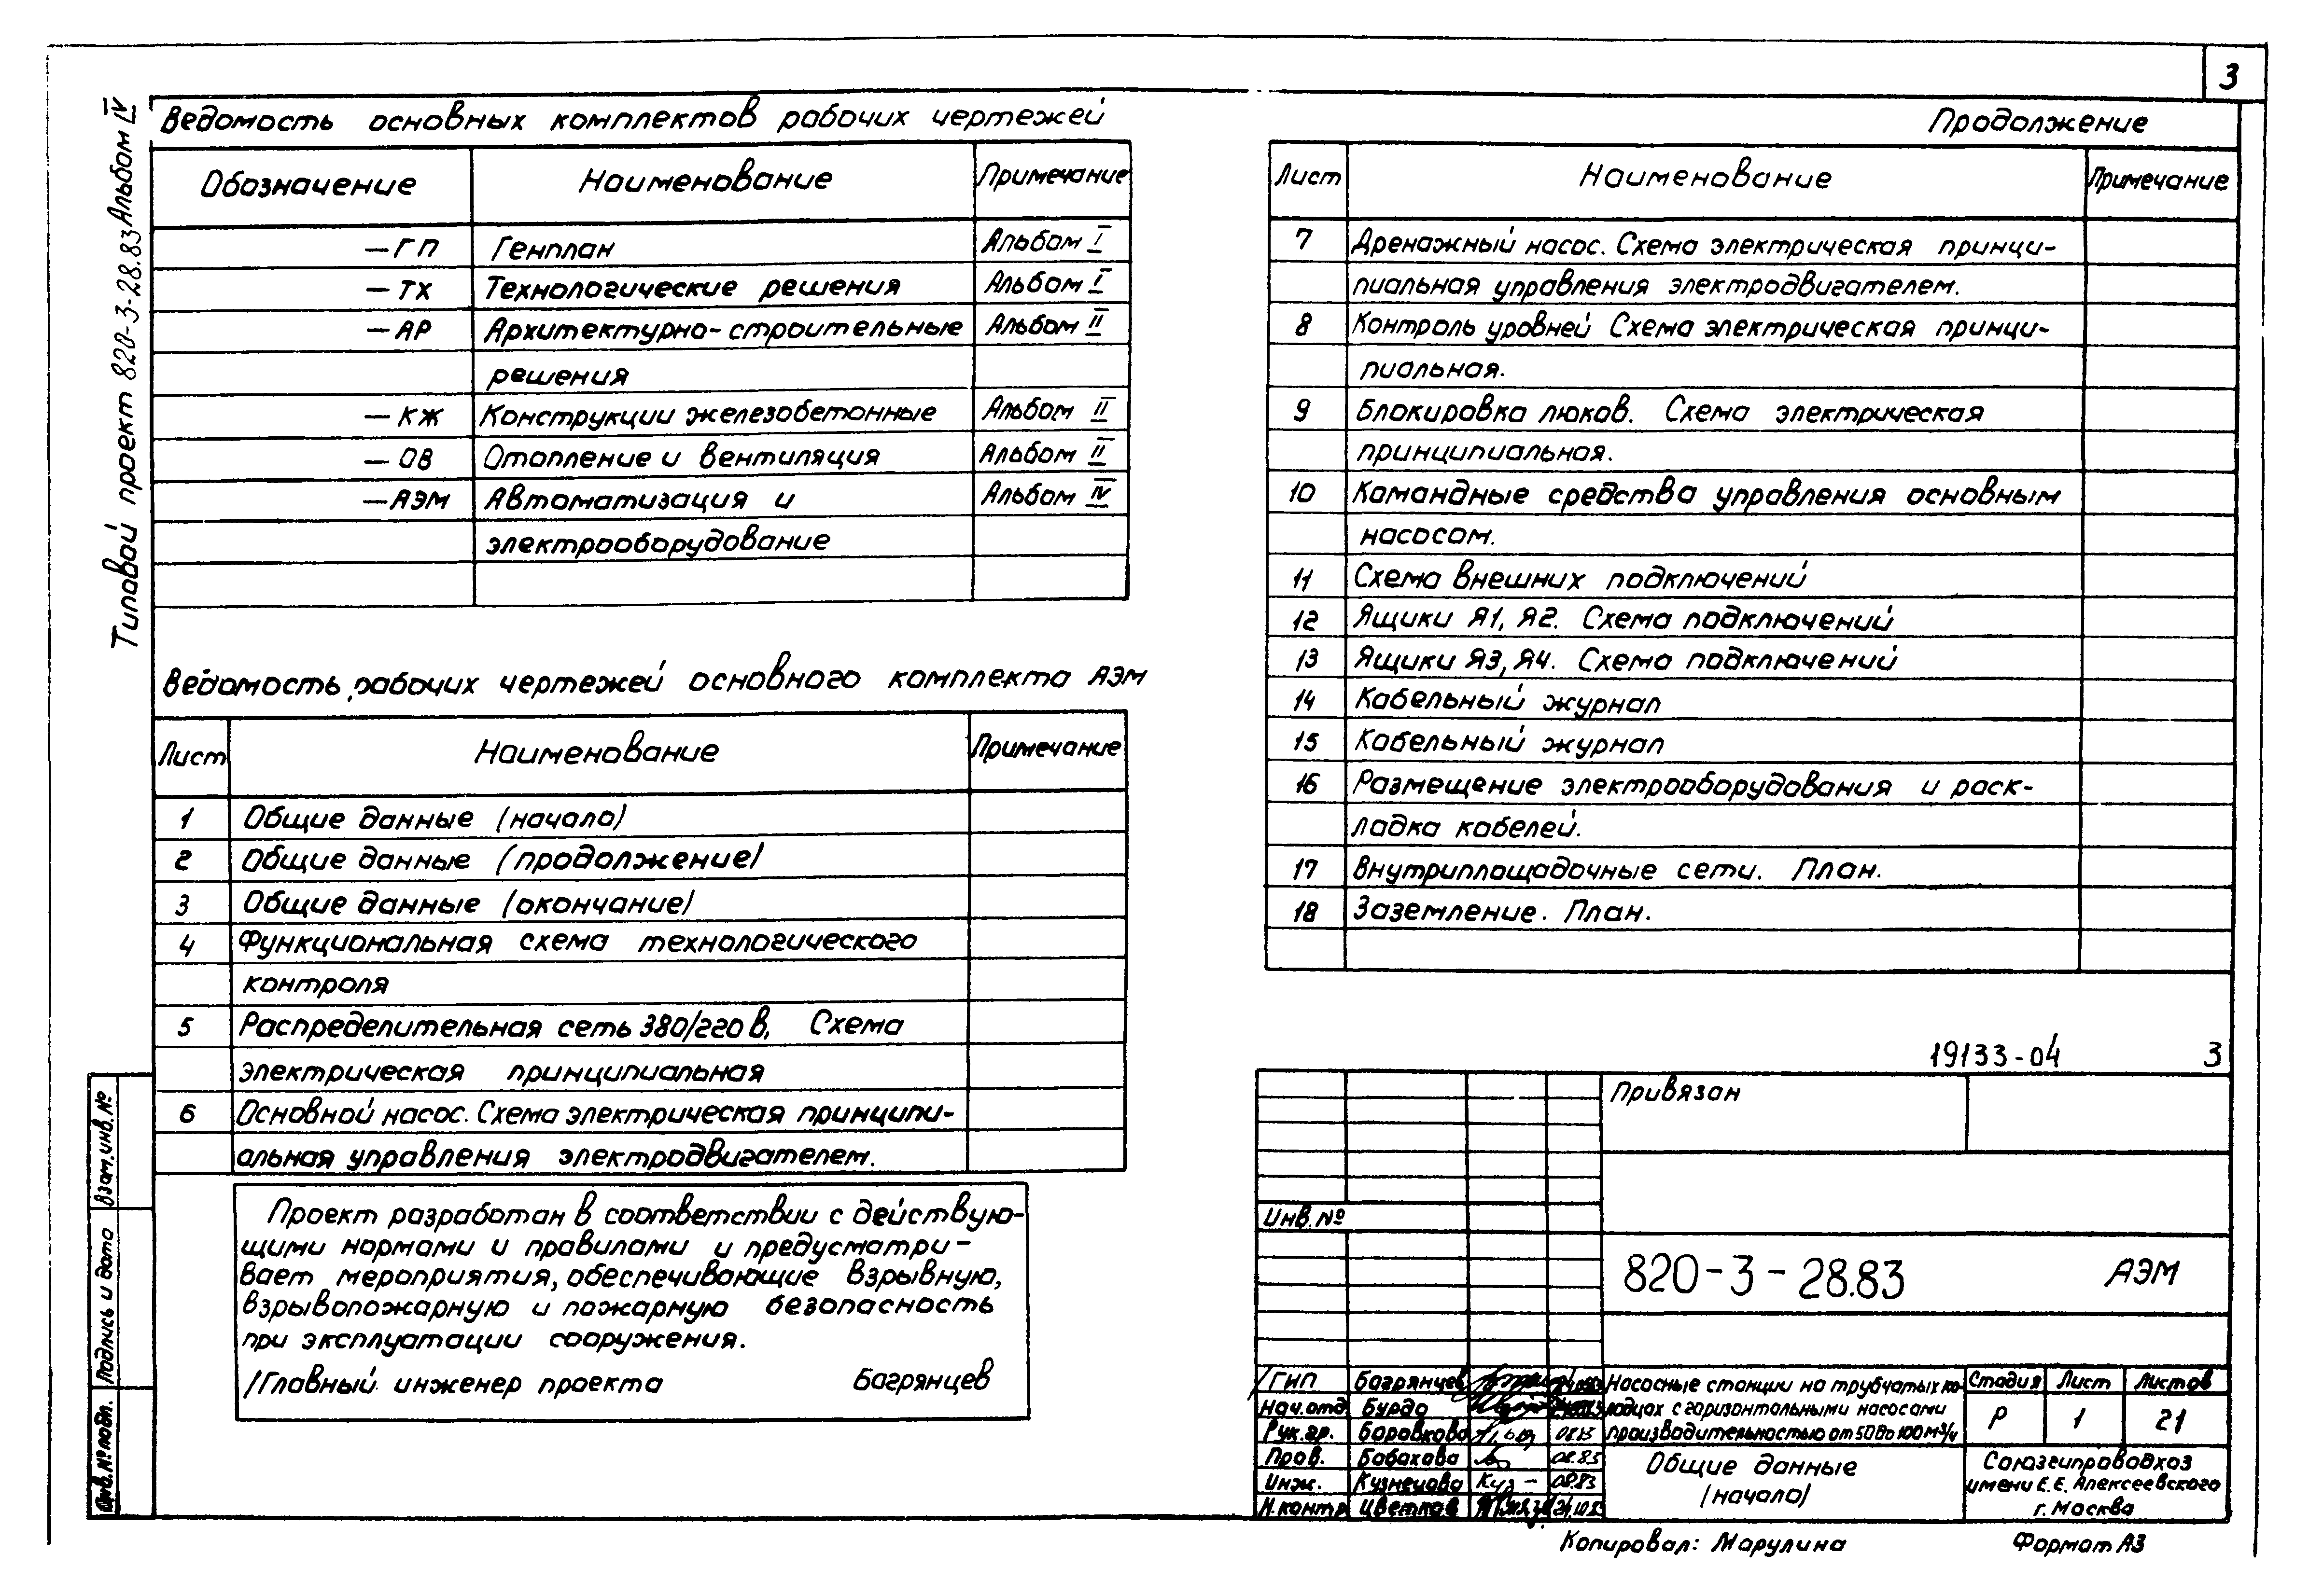 3
Типовой проект 820-3-28.83 Альбом IV
Ведомость основных комплектов рабочих чертежей
Обозначение Наименование Примечание
—ГП Генплан Альбом I
—ТХ Технологические решения Альбом I
—АР Архитектурно-строительные Альбом II
решения
—КЖ Конструкции железобетонные Альбом II
—ОВ Отопление и вентиляция Альбом II
—АЭМ Автоматизация и Альбом IV
электрооборудование
Ведомость рабочих чертежей основного комплекта АЭМ
Лист Наименование Примечание
1 Общие данные (начало)
2 Общие данные (продолжение)
3 Общие данные (окончание)
4 Функциональная схема технологического
контроля
5 Распределительная сеть 380/220 в, Схема
электрическая принципиальная
6 Основной насос. Схема электрическая принципи-
альная управления электродвигателем.
Проект разработан в соответствии с действую-
щими нормами и правилами и предусматри-
вает мероприятия, обеспечивающие взрывную,
взрывопожарную и пожарную безопасность
при эксплуатации сооружения.
/Главный инженер проекта Багрянцев
Продолжение
Лист Наименование Примечание
7 Дренажный насос. Схема электрическая принци-
пиальная управления электродвигателем.
8 Контроль уровней Схема электрическая принци-
пиальная.
9 Блокировка люков. Схема электрическая
принципиальная.
10 Командные средства управления основным
насосом.
11 Схема внешних подключений
12 Ящики Я1, Я2. Схема подключений
13 Ящики Я3, Я4. Схема подключений
14 Кабельный журнал
15 Кабельный журнал
16 Размещение электрооборудования и раск-
ладка кабелей.
17 Внутриплощадочные сети. План.
18 Заземление. План.
19133-04 3
Привязан
Инв.№
820-3-28.83 АЭМ
ГИП Багрянцев
Нач.отд. Бурда
Рук.гр. Боровкова 08.83
Пров. Бабахова 08.83
Инж. Кузнецова Куз— 08.83
Н.контр Цветков
Насосные станции на трубчатых ко-
лодцах с горизонтальными насосами
производительностью от 50 до 100 м³/ч
Стадия Лист Листов
Р 1 21
Общие данные
(начало)
Союзгипроводхоз
имени Е.Е. Алексеевского
г. Москва
Копировал: Марулина Формат А3
Взам.инв.№
Подпись и дата
Инв.№ подл.